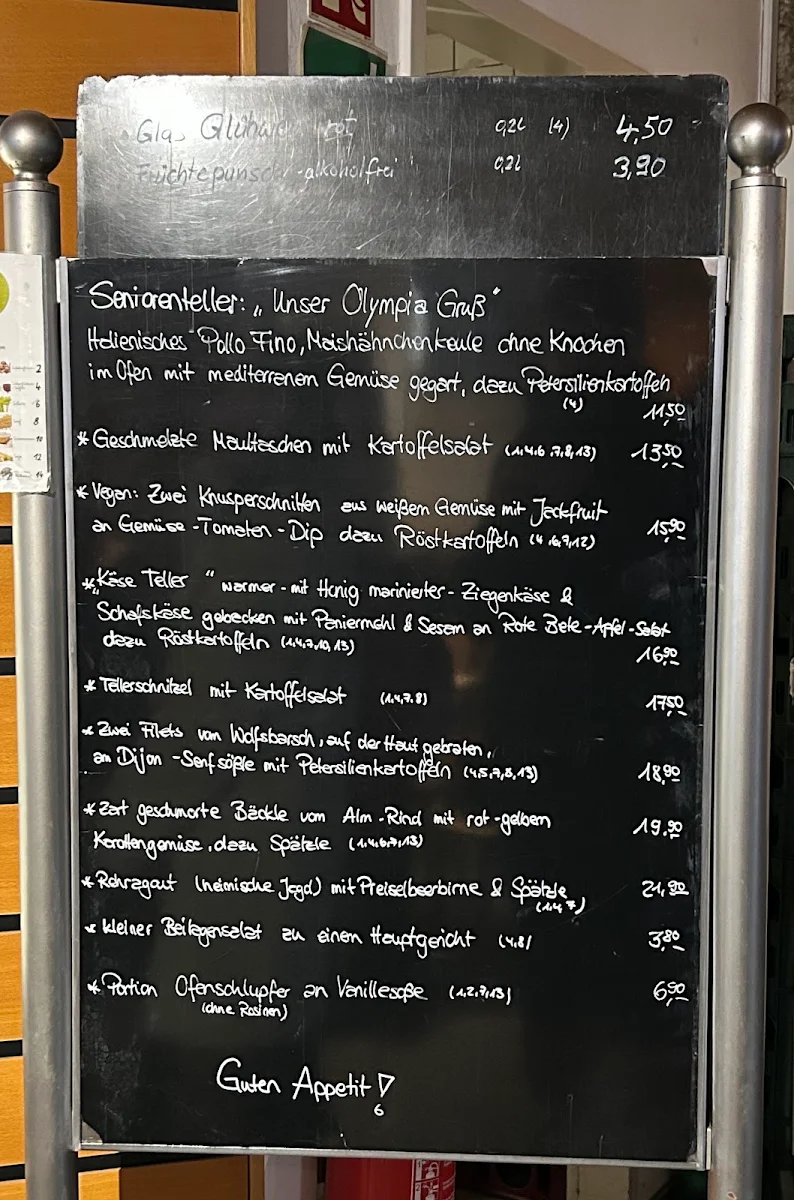 Glas Glühwein rot 0,2l (4) 4,50
Früchtepunsch -alkoholfrei 0,2l 3,90
Seniorenteller: „Unser Olympia Gruß“
Italienisches Pollo Fino, Maishähnchenkeule ohne Knochen
im Ofen mit mediterranem Gemüse gegart, dazu Petersilienkartoffeln
(4) 11,50
* Geschmelzte Maultaschen mit Kartoffelsalat (1,4,6,7,8,13) 13,50
* Vegan: Zwei Knusperschnitten aus weißem Gemüse mit Jackfruit
an Gemüse-Tomaten-Dip dazu Röstkartoffeln (4,6,9,12) 15,90
* „Käse Teller“ warmer-mit Honig marinierter-Ziegenkäse &
Schafskäse gebacken mit Paniermehl & Sesam an Rote Bete-Apfel-Salat
dazu Röstkartoffeln (1,4,7,10,13) 16,90
* Tellerschnitzel mit Kartoffelsalat (1,4,7,8) 17,50
* Zwei Filets vom Wolfsbarsch, auf der Haut gebraten,
an Dijon-Senfsößle mit Petersilienkartoffeln (4,5,7,8,13) 18,90
* Zart geschmorte Bäckle vom Alm-Rind mit rot-gelbem
Karottengemüse, dazu Spätzle (1,4,6,7,13) 19,90
* Rehragout (heimische Jagd) mit Preiselbeerbirne & Spätzle 21,90
(1,4,7)
* kleiner Beilagensalat zu einem Hauptgericht (4,8) 3,80
* Portion Ofenschlupfer an Vanillesoße (1,2,7,13) 6,90
(ohne Rosinen)
Guten Appetit!